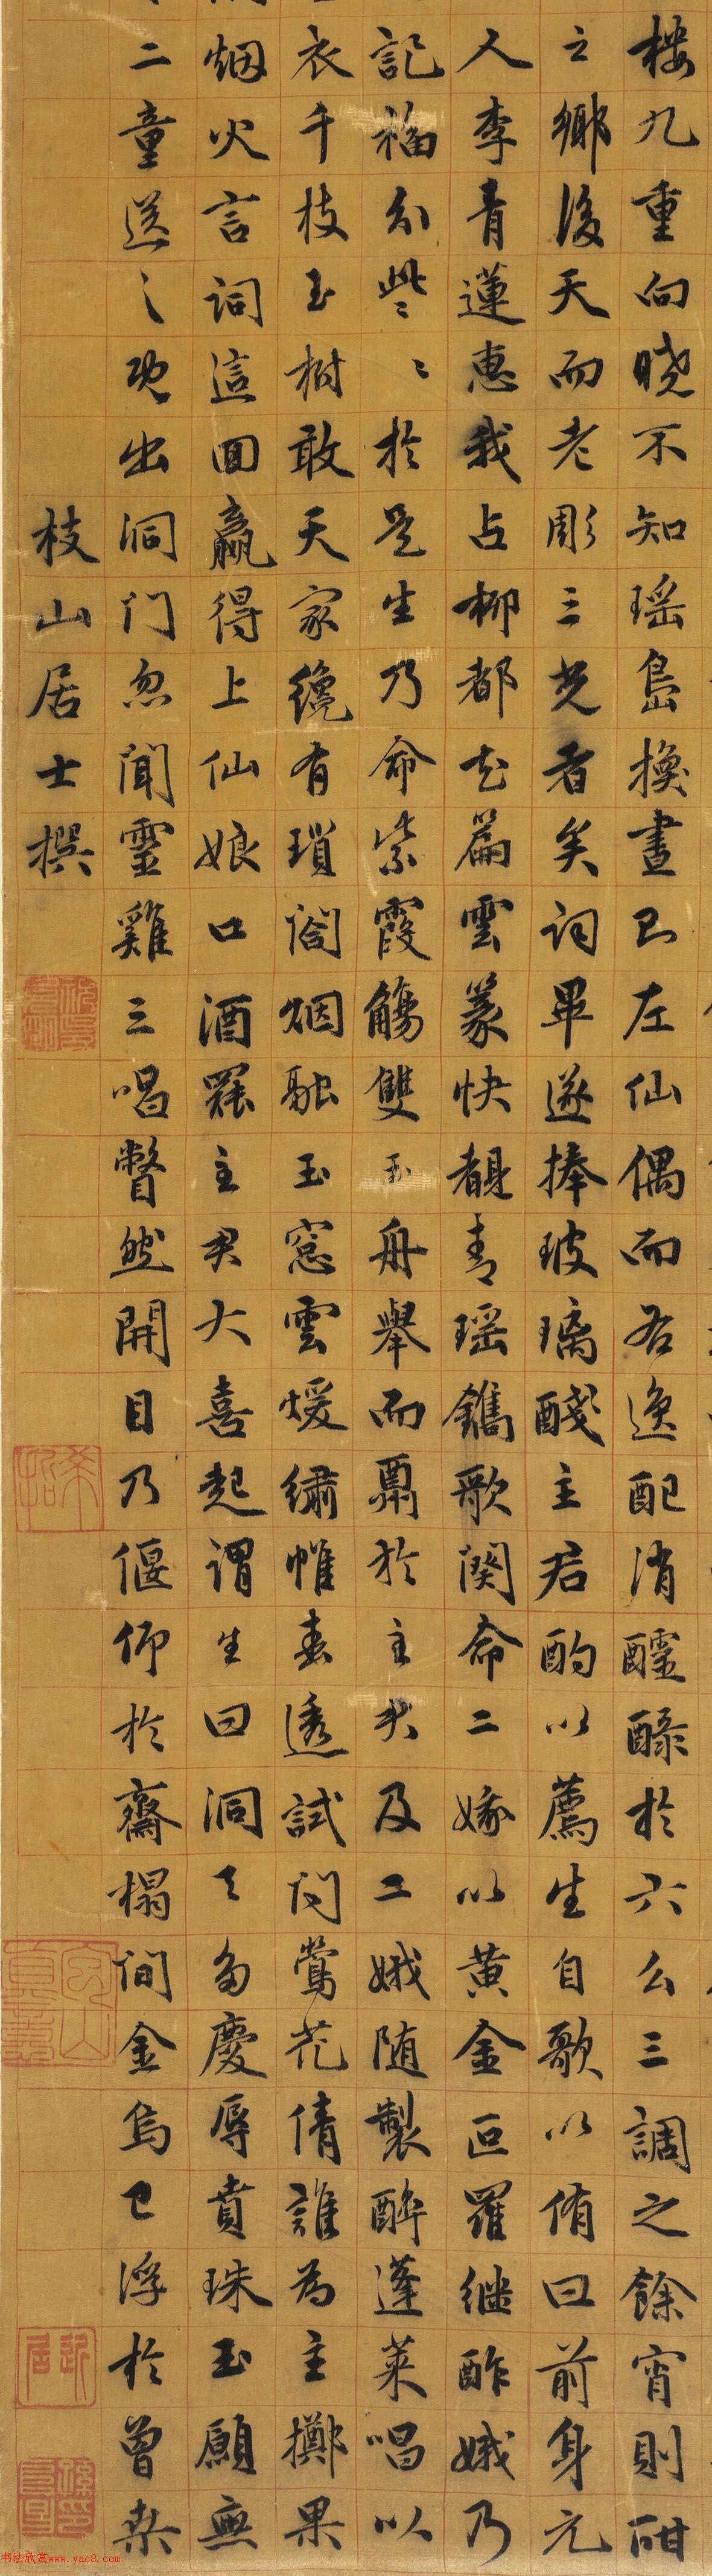 樓九重向曉不知瑶島換晝已左仙偶而右逸配消醽醁於六么三調之餘宵則酣
之鄉後天而老彫三光者矣詞畢遂捧玻璃醆主君酌以薦生自歌以侑曰前身元
人李青蓮惠我占柳都花篇雲篆快覩青瑶鐫歌闋命二娥以黄金叵羅継酢娥乃
記福分些些於是生乃命紫霞觴雙玉舟舉而鬻於主君及二娥随製醉蓬萊唱以
衣千枝玉樹敢天家纔有瑣閤烟融玉窓雲煖繡帷春透試问鶯花倩誰為主擲果
烟火言詞這回贏得上仙娘口酒罷主君大喜起謂生曰洞天多慶辱賁珠玉願無
二童送之既出洞门忽聞靈雞三唱瞥然開目乃偃仰於齋榻间金烏已浮於曾桒
枝山居士撰
书法欣赏www.yac8.com